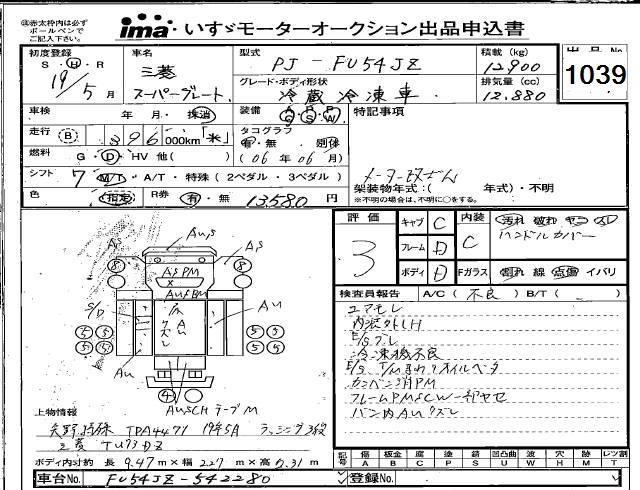 ㊟赤太枠内は必ず
ボールペンで
ご記入下さい。
ima いすゞモーターオークション出品申込書
初度登録
S・H・R
19/5月
車名
三菱
スーパーグレート
型式
PJ-FU54JZ
グレード・ボディ形状
冷蔵冷凍車
積載(kg)
12,900
排気量(cc)
12,880
出品No
1039
車検 年・月・抹消
装備 A/G P/S P/W
特記事項
走行 B 396,000km「米」
タコグラフ
有・無 別体
(06年06月)
燃料 G・D・HV 他( )
シフト 7 M/T・A/T・特殊(2ペダル・3ペダル)
メーター改ざん
架装物年式:( 年式)・不明
※不明の場合は、不明に○をする。
色 指定 R券 有・無 13580円
評価
3
キャブ C
フレーム D
ボディ D
内装 C
Fガラス
汚れ 破れ ヤコ スレ
ハンドルカバー
割れ 線 点傷 イバリ
検査員報告 A/C(不良) B/T( )
エアモレ
内装外しH
E/Gブレ
冷凍機不良
E/G、T/M廻りオイルベタ
カンバン消PM
フレームPMSCW一部ヤセ
バン内AUクズレ
AUS
AS
AS
8
8
ASPM
X
AUSBM
S/D
AU
AU
AU
5 5
5 5
5 5
5 5
4
AUSCH テープM
上物情報
矢野特殊 TDA4471 19年5A ラッシング3段
三菱 TU73DZ
ボディ内寸約 長 9.47m×幅 2.27m×高 2.31m
記号 傷A 板金B 腐C 塗P 錆S 凹凸曲U 波W 穴H 跡M レツ割T
車台No. FU54JZ-542280
登録No.